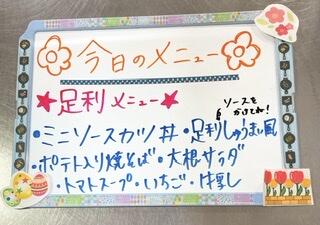 今日のメニュー
★足利メニュー★
ソースを
かけてね!
・ミニソースカツ丼・足利しゅうまい風
・ポテト入り焼きそば・大根サラダ
・トマトスープ・いちご・牛乳